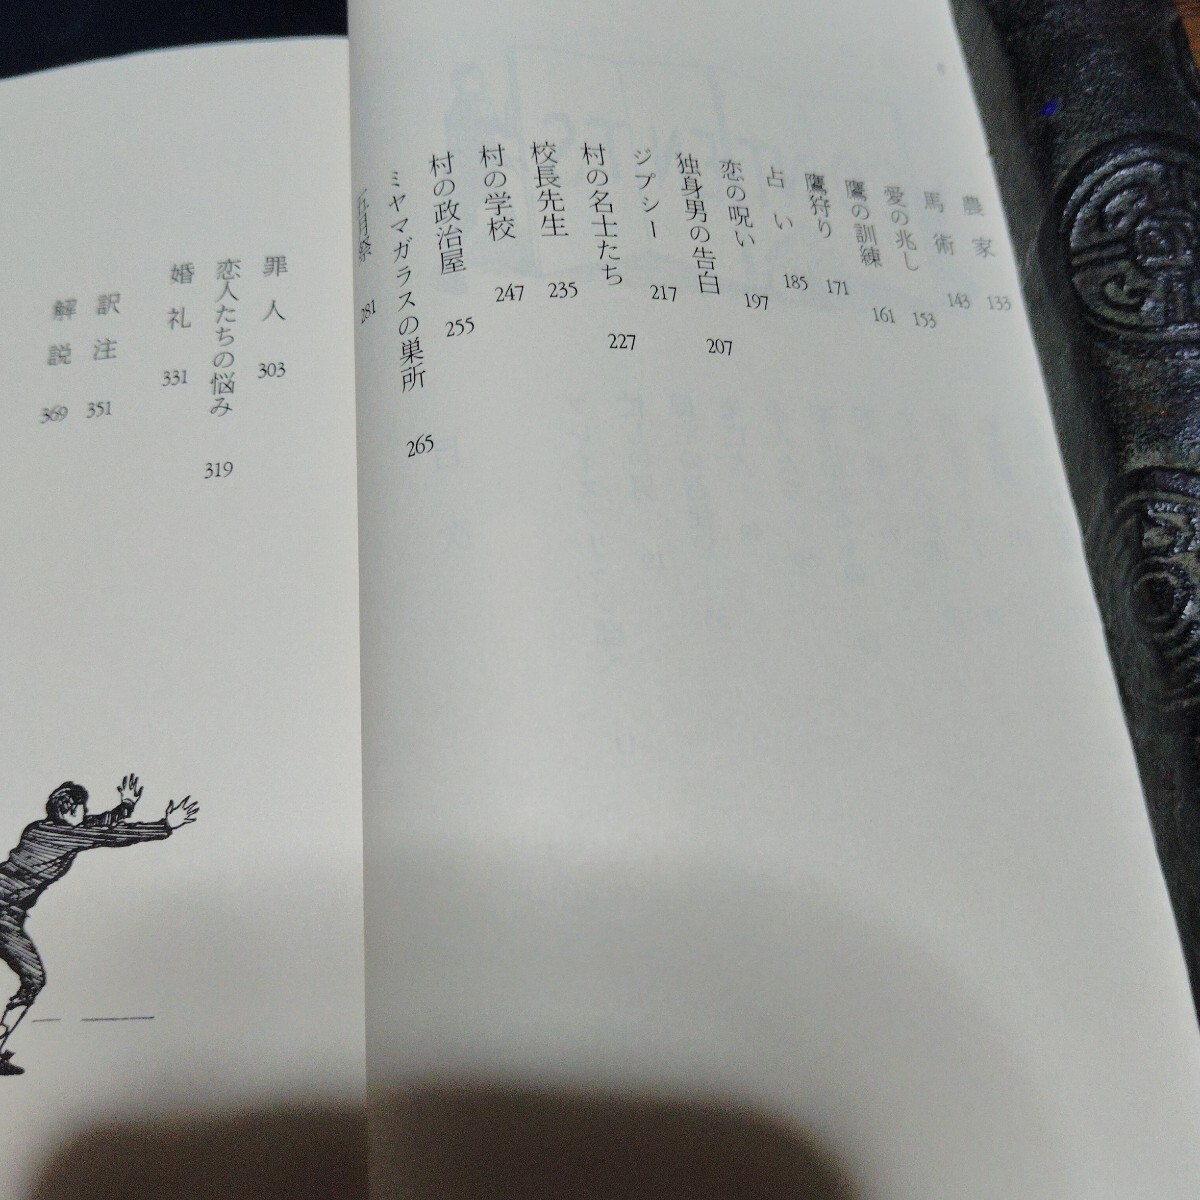 農家 133
馬術 143
愛の兆し 153
鷹の訓練 161
鷹狩り 171
占い 185
恋の呪い 197
独身男の告白 207
ジプシー 217
村の名士たち 227
校長先生 235
村の学校 247
村の政治屋 255
ミヤマガラスの巣所 265
五月祭 281
罪人 303
恋人たちの悩み 319
婚礼 331
訳注 351
解説 369